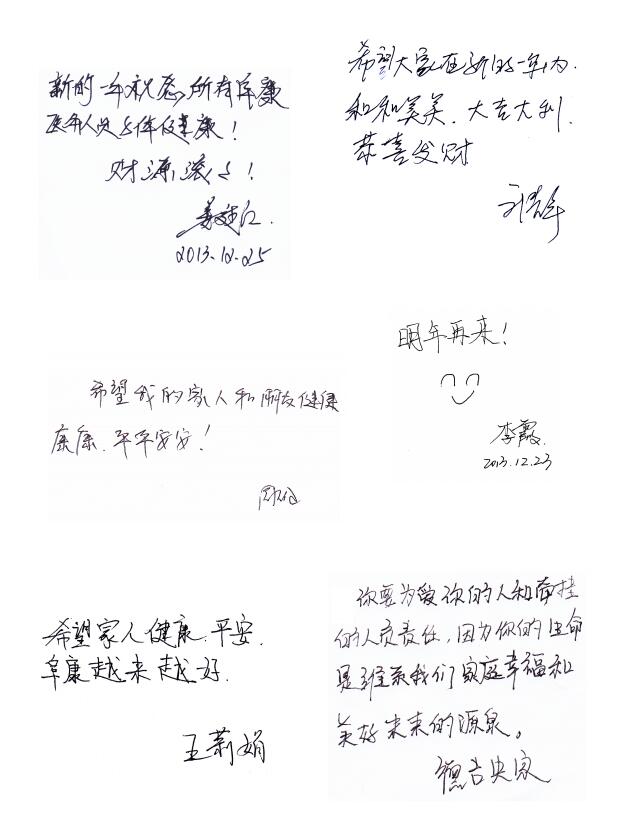 新的一年祝愿所有阜康
医务人员身体健康！
财源滚滚！
2013.12.25
希望大家在新的一年内.
和和美美.大吉大利.
恭喜发财
希望我的家人和朋友健健
康康.平平安安！
明年再来！
李霞
2013.12.23
希望家人健康.平安.
阜康越来越好.
王莉娟
你要为爱你的人和牵挂
你的人负责任，因为你的生命
是维系我们家庭幸福和
美好未来的源泉。
德吉央宗